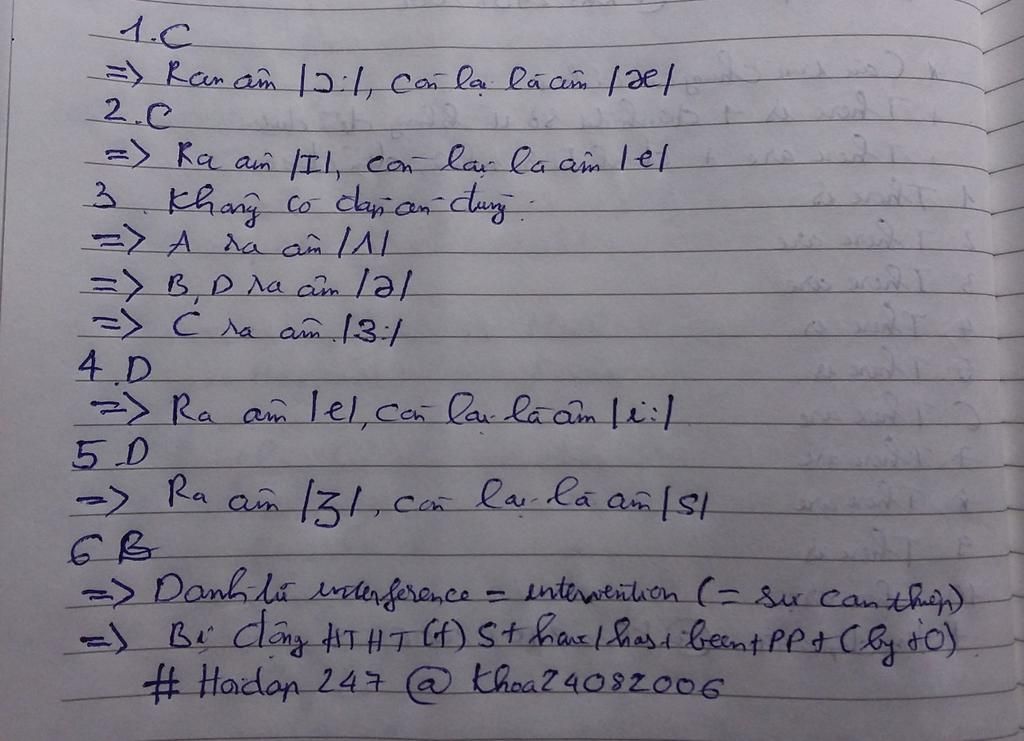 1.C
=> Ran âm |ɔ:|, còn lại là âm |æ|
2.C
=> Ra âm |I|, còn lại là âm |e|
3. Không có đáp án đúng.
=> A ra âm |ʌ|
=> B, D ra âm |ə|
=> C ra âm |3:|
4.D
=> Ra âm |e|, còn lại là âm |i:|
5.D
=> Ra âm |ʒ|, còn lại là âm |s|
6 B
=> Danh từ interference = intervention (= sự can thiệp)
=> Bị động HTHT (+) S + have/has + been + PP + (by + O)
# Hoidap 247 @ khoa24082006